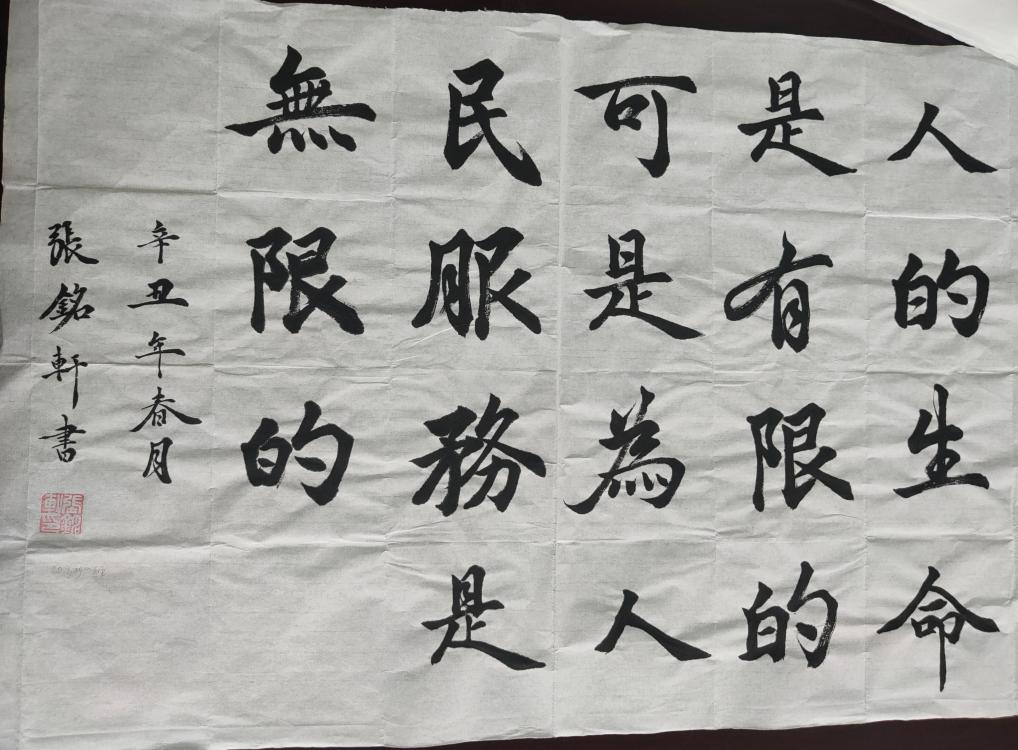 人的生命
是有限的
可是為人
民服務是
無限的
辛丑年春月
張銘軒書